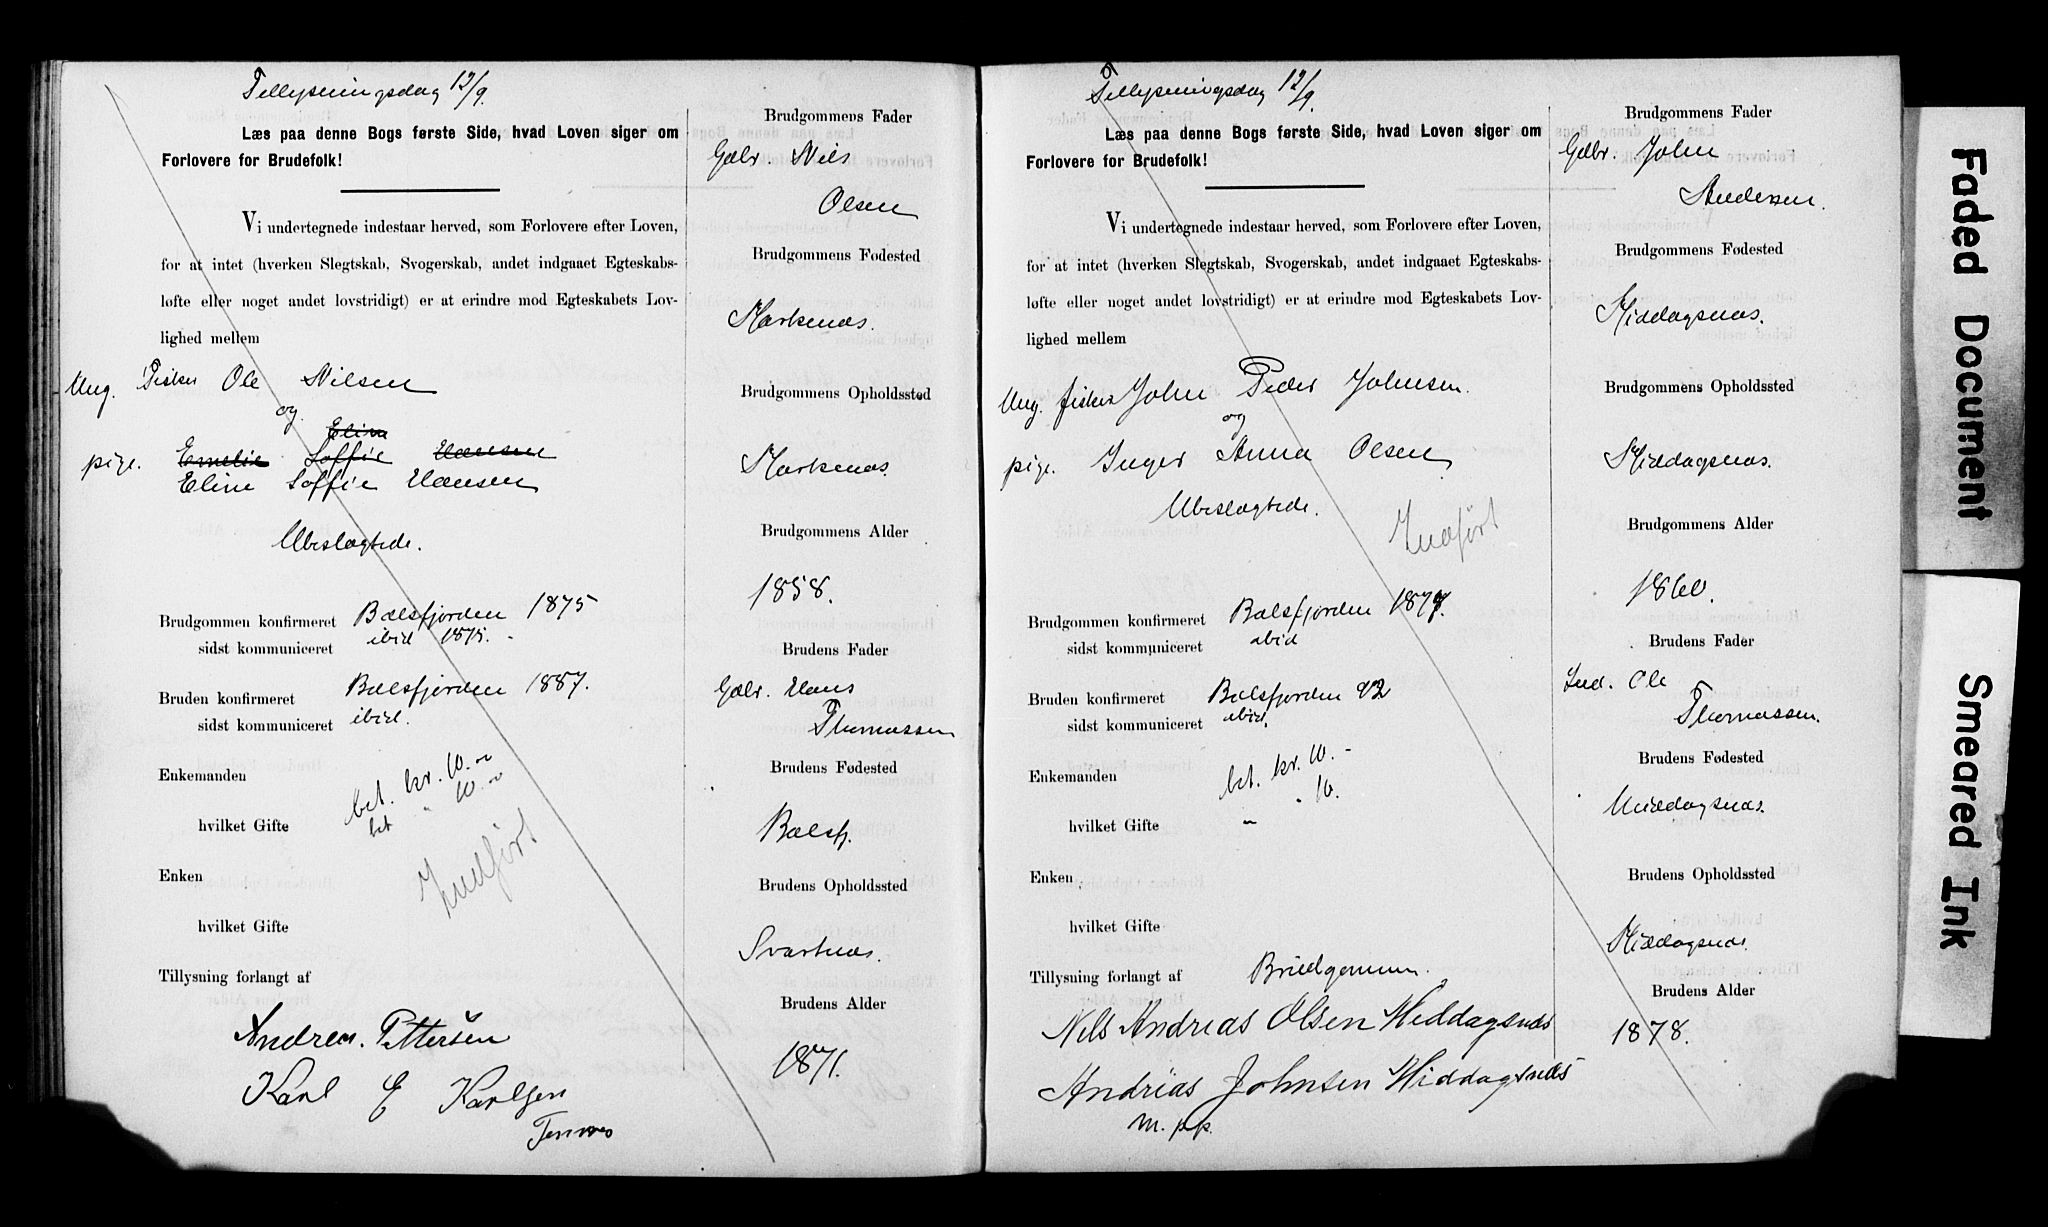 Tillysningsdag 12/9.
Læs paa denne Bogs første Side, hvad Loven siger om
Forlovere for Brudefolk!
Vi undertegnede indestaar herved, som Forlovere efter Loven,
for at intet (hverken Slegtskab, Svogerskab, andet indgaaet Egteskabs-
løfte eller noget andet lovstridigt) er at erindre mod Egteskabets Lov-
lighed mellem
Ung. Fisker Ole Nilsen
og
Elina
pige. Emelie Soffie Hansen
Eline Soffie Hansen
Ubeslægtede.
Brudgommen konfirmeret Balsfjorden 1875
sidst kommuniceret ibid 1875.
Bruden konfirmeret Balsfjorden 1887.
sidst kommuniceret ibid.
Enkemanden bet. kr. 10.
hvilket Gifte bet " 10.
Indført
Enken
hvilket Gifte
Tillysning forlangt af
Andreas. Pettersen
Karl E Karlsen
Tennes
Brudgommens Fader
Gdbr. Nils
Olsen
Brudgommens Fødested
Markenæs.
Brudgommens Opholdssted
Markenæs.
Brudgommens Alder
1858.
Brudens Fader
Gdbr. Hans
Thomassen
Brudens Fødested
Balsfj.
Brudens Opholdssted
Svartnæs.
Brudens Alder
1871.
Tillysningsdag 12/9.
Læs paa denne Bogs første Side, hvad Loven siger om
Forlovere for Brudefolk!
Vi undertegnede indestaar herved, som Forlovere efter Loven,
for at intet (hverken Slegtskab, Svogerskab, andet indgaaet Egteskabs-
løfte eller noget andet lovstridigt) er at erindre mod Egteskabets Lov-
lighed mellem
Ung. fisker John Peder Johnsen.
og
pige. Inger Anna Olsen
Ubeslægtede.
Indført
Brudgommen konfirmeret Balsfjorden
sidst kommuniceret ibid
Bruden konfirmeret Balsfjorden 92
sidst kommuniceret ibid.
Enkemanden bet. kr. 10.-
hvilket Gifte " " 10.
Enken
hvilket Gifte
Tillysning forlangt af Brudgommen.
Nils Andreas Olsen Middagsnæs
Andreas Johnsen Middagsnæs
m. p.p.
Brudgommens Fader
Gdbr. John
Andersen.
Brudgommens Fødested
Middagsnæs.
Brudgommens Opholdssted
Middagsnæs.
Brudgommens Alder
1860.
Brudens Fader
Ind. Ole
Thomassen.
Brudens Fødested
Middagsnæs.
Brudens Opholdssted
Middagsnæs.
Brudens Alder
1878.
Faded Document
Smeared Ink